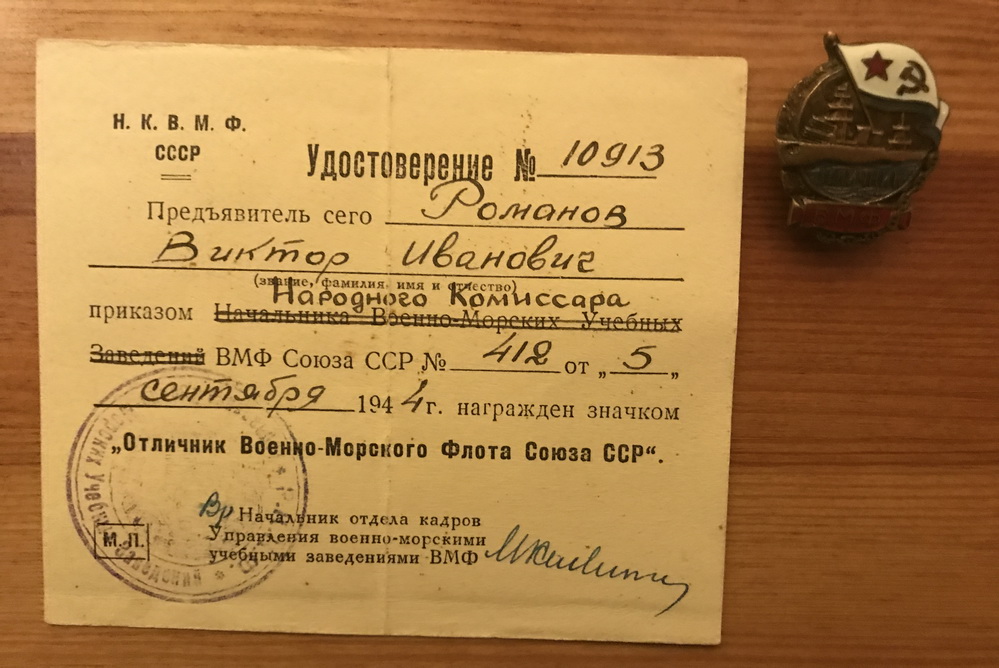 Н. К. В. М. Ф.
СССР
Удостоверение № 10913
Предъявитель сего Романов
Виктор Иванович
(звание, фамилия, имя и отчество)
Народного Комиссара
приказом Начальника Военно-Морских Учебных
Заведений ВМФ Союза ССР № 412 от „5„
сентября 1944 г. награжден значком
„Отличник Военно-Морского Флота Союза ССР“.
Вр Начальник отдела кадров
Управления военно-морскими
учебными заведениями ВМФ
М.П.